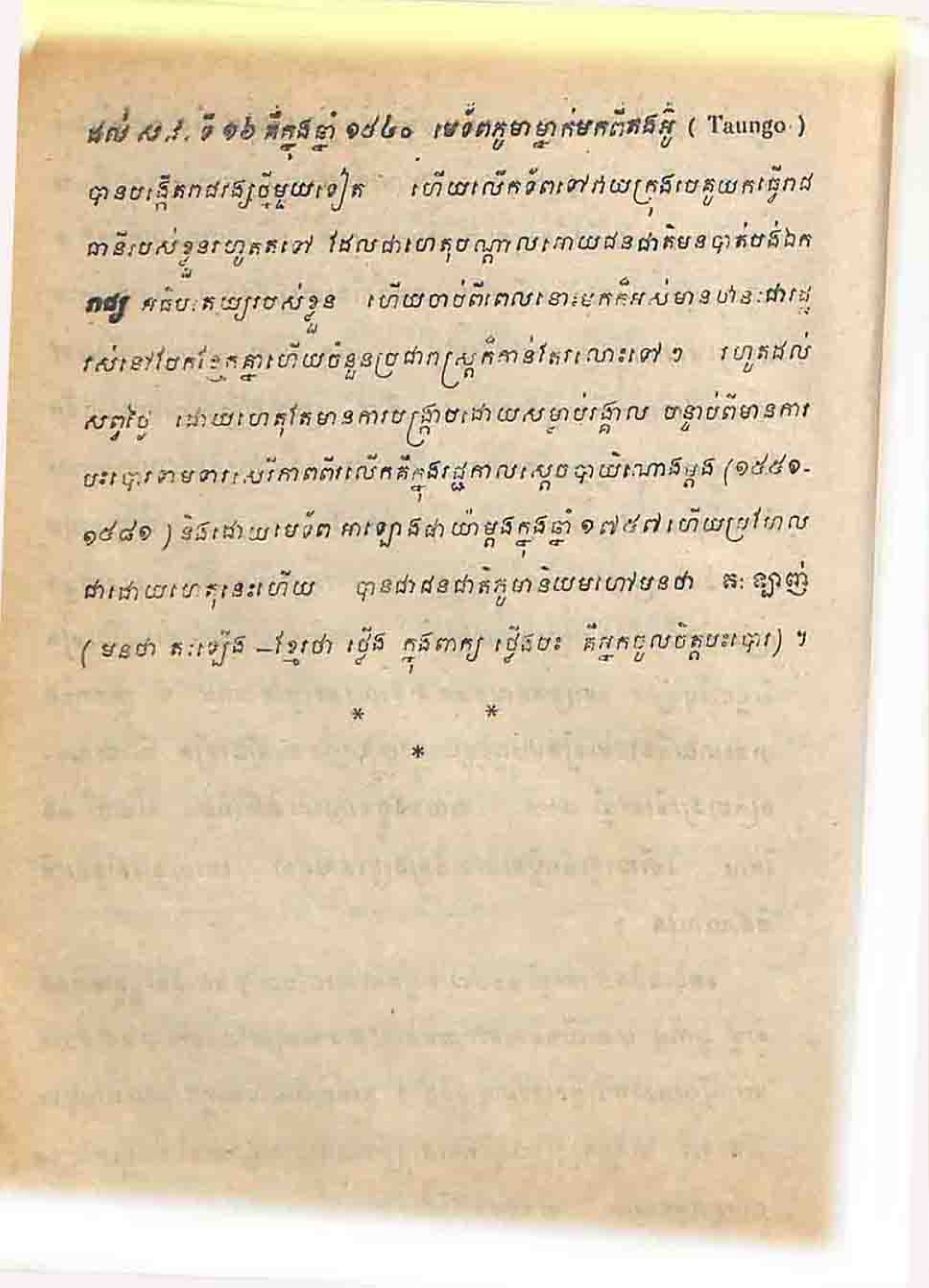 ដល់ ស.វ. ទី ១៦ គឺក្នុងឆ្នាំ ១៥៤០ មេទ័ពភូមាម្នាក់មកពីតងអ៊ូ ( Taungo )
បានបង្កើតរាជវង្សថ្មីមួយទៀត ហើយលើកទ័ពទៅវាយក្រុងបេគូយកធ្វើរាជ
ធានីរបស់ខ្លួនរហូតតទៅ ដែលជាហេតុបណ្តាលអោយជនជាតិមនបាត់បង់ឯក
រាជ្យ អធិបតេយ្យរបស់ខ្លួន ហើយចាប់ពីពេលនោះមកក៏អស់មានឋានៈជារដ្ឋ
រស់នៅបែកខ្ញែកគ្នាហើយចំនួនប្រជារាស្ត្រក៏កាន់តែរលោះទៅ ៗ រហូតដល់
សព្វថ្ងៃ ដោយហេតុតែមានការបង្ក្រាបដោយសម្លាប់រង្គាល បន្ទាប់ពីមានការ
បះបោរទាមទារសេរីភាពពីរលើកគឺក្នុងរជ្ជកាលស្តេចបាយិំណោងម្តង (១៥៥១-
១៥៨១ ) និងដោយមេទ័ព អាឡោងផាយ៉ាម្តងក្នុងឆ្នាំ ១៧៥៧ ហើយប្រហែល
ជាដោយហេតុនេះហើយ បានជាជនជាតិភូមានិយមហៅមនថា តៈឡាញ់
( មនថា តៈឡើង —ខ្មែរថា ថ្លើង ក្នុងពាក្យ ថ្លើងបះ គឺអ្នកចូលចិត្តបះបោរ) ។
* *
*